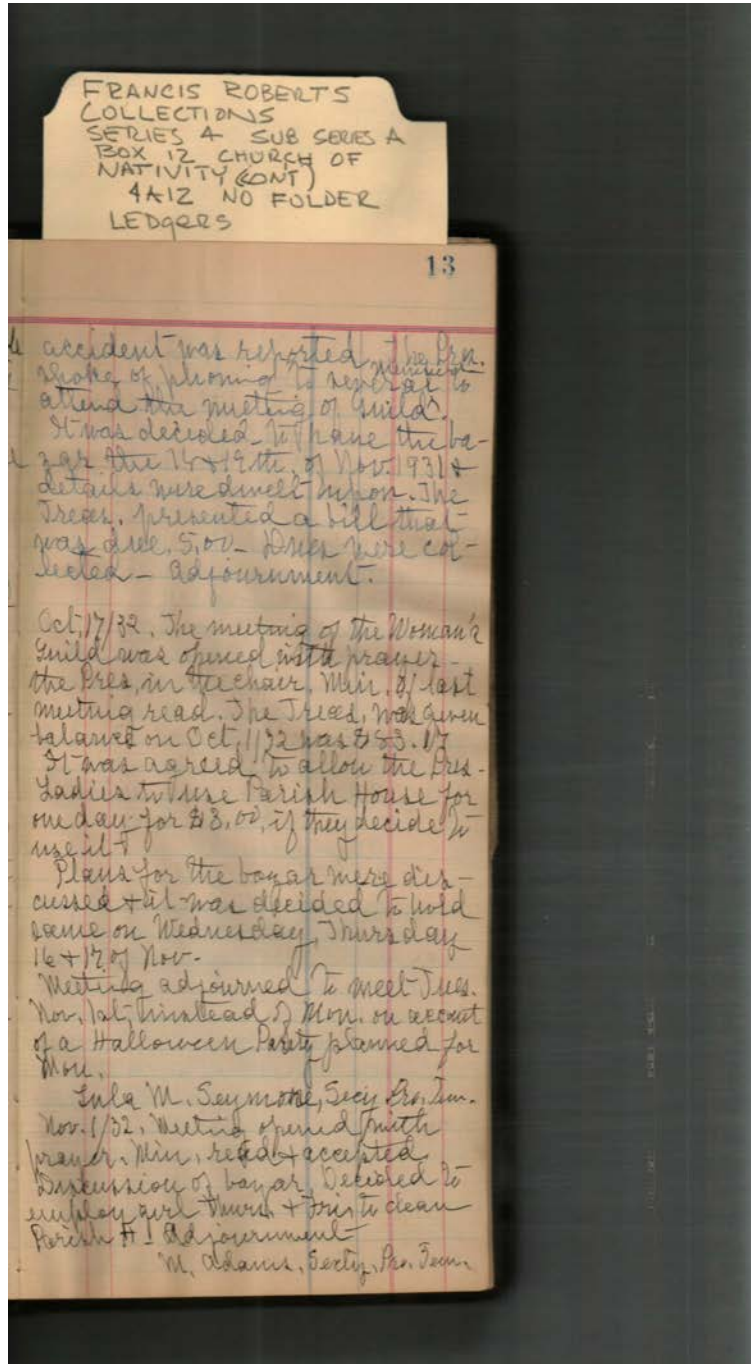 FRANCIS ROBERTS
COLLECTIONS
SERIES 4 SUB SERIES A
BOX 12 CHURCH OF
NATIVITY (CONT)
4A12 NO FOLDER
LEDGERS
13
accident was reported. The Pres.
spoke of phoning to several members to
attend the meeting of Guild.
It was decided to have the ba-
zar the &19th. of Nov. 1931 &
details were dwelt upon. The
Treas. presented a bill that
was due, 5,00 - Dues were col-
lected - Adjournment.
Oct. 17/32. The meeting of the Woman's
Guild was opened with prayer -
the Pres, in the chair. Min. of last
meeting read. The Treas, was given
balance on Oct. 1/32 was $83.17
It was agreed to allow the Pres-
Ladies to use Parish House for
one day for $3,00, if they decide to
use it.
Plans for the bazar were dis-
cussed & it was decided to hold
same on Wednesday, Thursday
16 & 17 of Nov.
Meeting adjourned to meet Tues.
Nov. 1st, instead of Mon. on account
of a Halloween Party planned for
Mon.
Lula M. Seymore, Secy Pro. Tem.
Nov. 1/32. Meeting opened with
prayer. Min. read & accepted
Discussion of bazar. Decided to
employ girl Thurs. & Fri. to clean
Parish H - Adjournment
M. Adams, Secty. Pro. Tem.